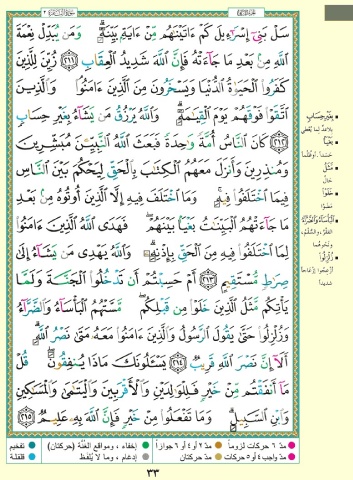 سَلْ بَنِىٓ إِسْرَٰٓءِيلَ كَمْ ءَاتَيْنَٰهُم مِّنْ ءَايَةٍۭ بَيِّنَةٍۗ وَمَن يُبَدِّلْ نِعْمَةَ
ٱللَّهِ مِنۢ بَعْدِ مَا جَآءَتْهُ فَإِنَّ ٱللَّهَ شَدِيدُ ٱلْعِقَابِ ٢١١ زُيِّنَ لِلَّذِينَ
كَفَرُوا۟ ٱلْحَيَوٰةُ ٱلدُّنْيَا وَيَسْخَرُونَ مِنَ ٱلَّذِينَ ءَامَنُوا۟ۘ وَٱلَّذِينَ
ٱتَّقَوْا۟ فَوْقَهُمْ يَوْمَ ٱلْقِيَٰمَةِۗ وَٱللَّهُ يَرْزُقُ مَن يَشَآءُ بِغَيْرِ حِسَابٍ
٢١٢ كَانَ ٱلنَّاسُ أُمَّةً وَٰحِدَةً فَبَعَثَ ٱللَّهُ ٱلنَّبِيِّـۧنَ مُبَشِّرِينَ
وَمُنذِرِينَ وَأَنزَلَ مَعَهُمُ ٱلْكِتَٰبَ بِٱلْحَقِّ لِيَحْكُمَ بَيْنَ ٱلنَّاسِ
فِيمَا ٱخْتَلَفُوا۟ فِيهِۚ وَمَا ٱخْتَلَفَ فِيهِ إِلَّا ٱلَّذِينَ أُوتُوهُ مِنۢ بَعْدِ
مَا جَآءَتْهُمُ ٱلْبَيِّنَٰتُ بَغْيًۢا بَيْنَهُمْۖ فَهَدَى ٱللَّهُ ٱلَّذِينَ ءَامَنُوا۟
لِمَا ٱخْتَلَفُوا۟ فِيهِ مِنَ ٱلْحَقِّ بِإِذْنِهِۦۗ وَٱللَّهُ يَهْدِى مَن يَشَآءُ إِلَىٰ
صِرَٰطٍ مُّسْتَقِيمٍ ٢١٣ أَمْ حَسِبْتُمْ أَن تَدْخُلُوا۟ ٱلْجَنَّةَ وَلَمَّا
يَأْتِكُم مَّثَلُ ٱلَّذِينَ خَلَوْا۟ مِن قَبْلِكُمۖ مَّسَّتْهُمُ ٱلْبَأْسَآءُ وَٱلضَّرَّآءُ
وَزُلْزِلُوا۟ حَتَّىٰ يَقُولَ ٱلرَّسُولُ وَٱلَّذِينَ ءَامَنُوا۟ مَعَهُۥ مَتَىٰ نَصْرُ ٱللَّهِۗ
أَلَآ إِنَّ نَصْرَ ٱللَّهِ قَرِيبٌ ٢١٤ يَسْـَٔلُونَكَ مَاذَا يُنفِقُونَۖ قُلْ
مَآ أَنفَقْتُم مِّنْ خَيْرٍ فَلِلْوَٰلِدَيْنِ وَٱلْأَقْرَبِينَ وَٱلْيَتَٰمَىٰ وَٱلْمَسَٰكِينِ
وَٱبْنِ ٱلسَّبِيلِۗ وَمَا تَفْعَلُوا۟ مِنْ خَيْرٍ فَإِنَّ ٱللَّهَ بِهِۦ عَلِيمٌ ٢١٥
بِغَيْرِ حِسَابٍ
بَغْيًا
مَثَلُ
خَلَوْا
الْبَأْسَاءُ وَالضَّرَّاءُ
زُلْزِلُوا
مدّ ٦ حركات لزوماً
مدّ ٢ أو ٤ أو ٦ جوازاً
إخفاء، ومواقع الغُنَّة (حركتان)
تفخيم
مدّ واجب ٤ أو ٥ حركات
مدّ حركتان
إدغام، وما لا يُلفَظ
قلقلة
٣٣